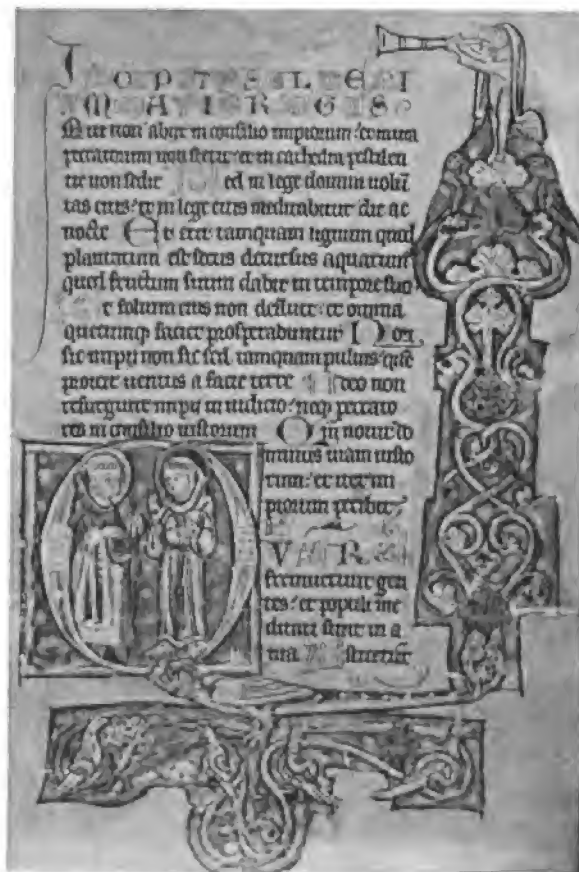 Qui non abiit in consilio impiorum et in uia
peccatorum non stetit et in cathedra pestilen
tie non sedit Sed in lege domini uolū
tas eius et in lege eius meditabitur die ac
nocte Et erit tamquam lignum quod
plantatum est secus decursus aquarum
quod fructum suum dabit in tempore suo
Et folium eius non defluet et omnia
quecumq faciet prosperabuntur Non
sic impii non sic sed tamquam puluis que
proicit uentus a facie terre Ideo non
resurgunt impii in iudicio neq peccato
res in consilio iustorum Qm nouit do
minus uiam iusto
rum et iter im
piorum peribit
fremuerunt gen
tes et populi me
ditati sunt in a
nia